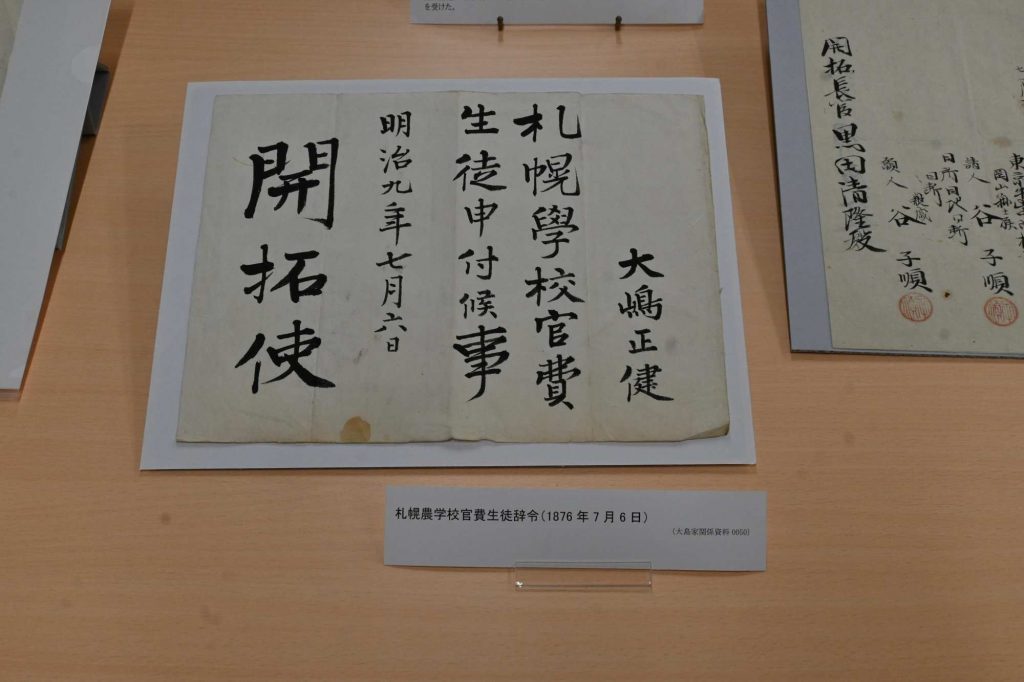 を受けた。
大嶋正健
札幌學校官費
生徒申付候事
明治九年七月六日
開拓使
札幌農学校官費生徒辞令(1876年7月6日)
(大島家関係資料 0050)
請人 谷 子順
願人 谷 子順
開拓長官黒田清隆殿